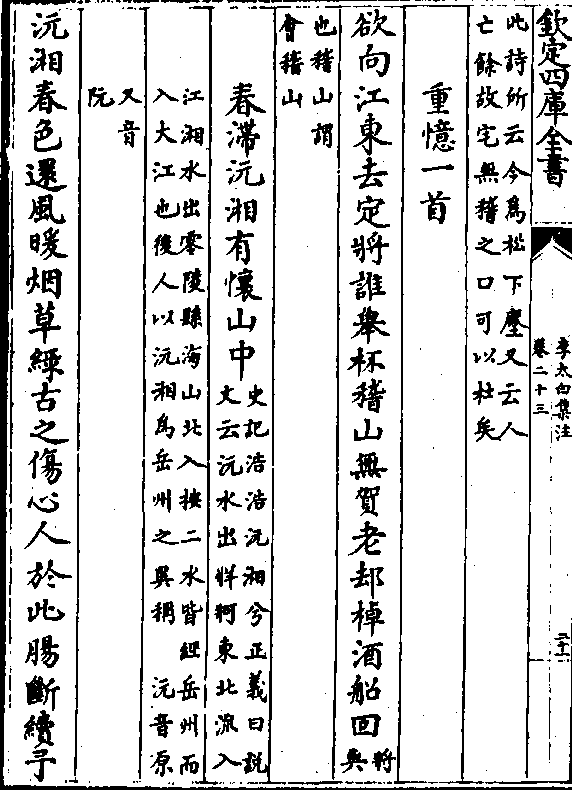 欽定四庫全書
李太白集注
卷二十三
此詩所云今為松下塵又云人
亡餘故宅無稽之口可以杜矣
重憶一首
欲向江東去定將誰舉杯稽山無賀老却棹酒船回
將
與
也稽山謂
會稽山
春滯沅湘有懷山中
史記浩浩沅湘兮正義曰説
文云沅水出牂牁東北流入
江湘水出零陵縣海山北入按二水皆經岳州而
入大江也後人以沅湘為岳州之異稱 沅音原
又音
阮
沅湘春色還風暖烟草緑古之傷心人於此腸斷續予